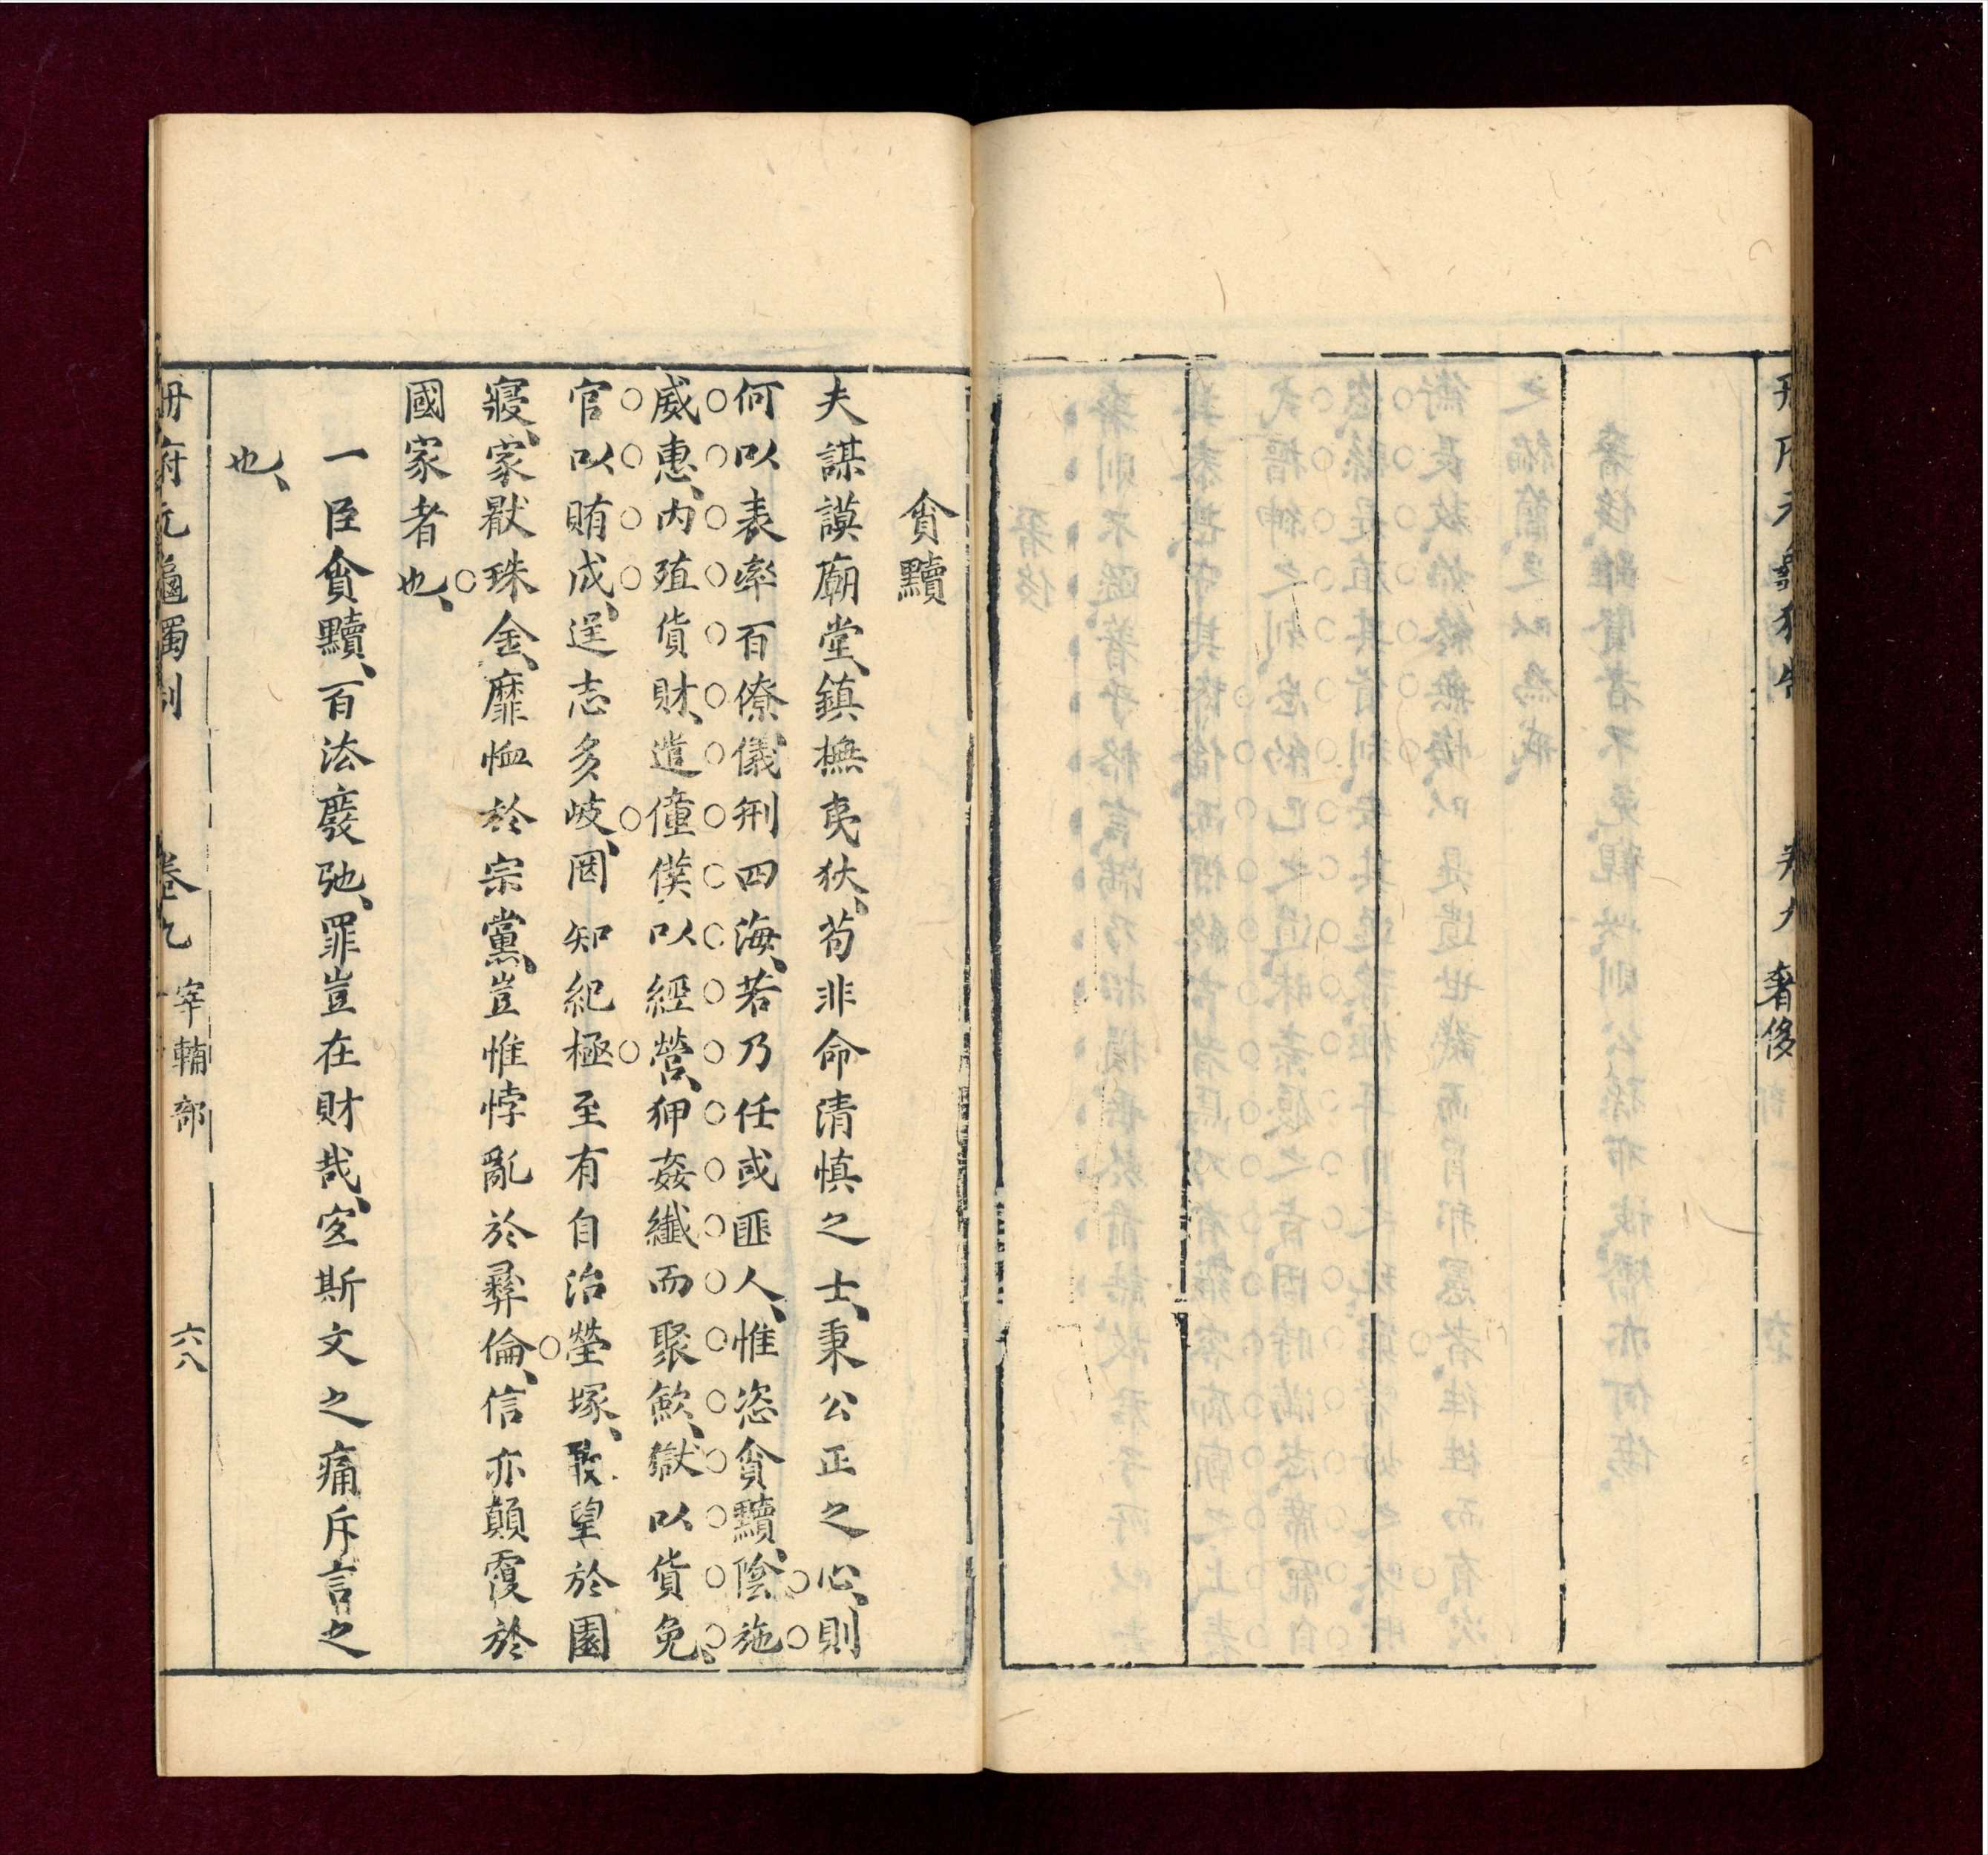 冊府元龜獨制
卷九
奢侈
貪黷
夫謀謨廟堂、鎮撫夷狄、苟非命清慎之士、秉公正之心、則
何以表率百僚、儀刑四海、若乃任或匪人、惟恣貪黷、陰施
威惠、內殖貨財、遣僮僕以經營、狎姦纖而聚歛、獄以貨免、
官以賄成、逞志多岐、罔知紀極、至有自治塋塚、敢望於園
寢、家獸珠金、靡恤於宗黨、豈惟悖亂於彝倫、信亦顛覆於
國家者也、
一臣貪黷、百法廢弛、罪豈在財哉、宜斯文之痛斥言之
也、
冊府元龜獨制
卷九
宰輔部
六八